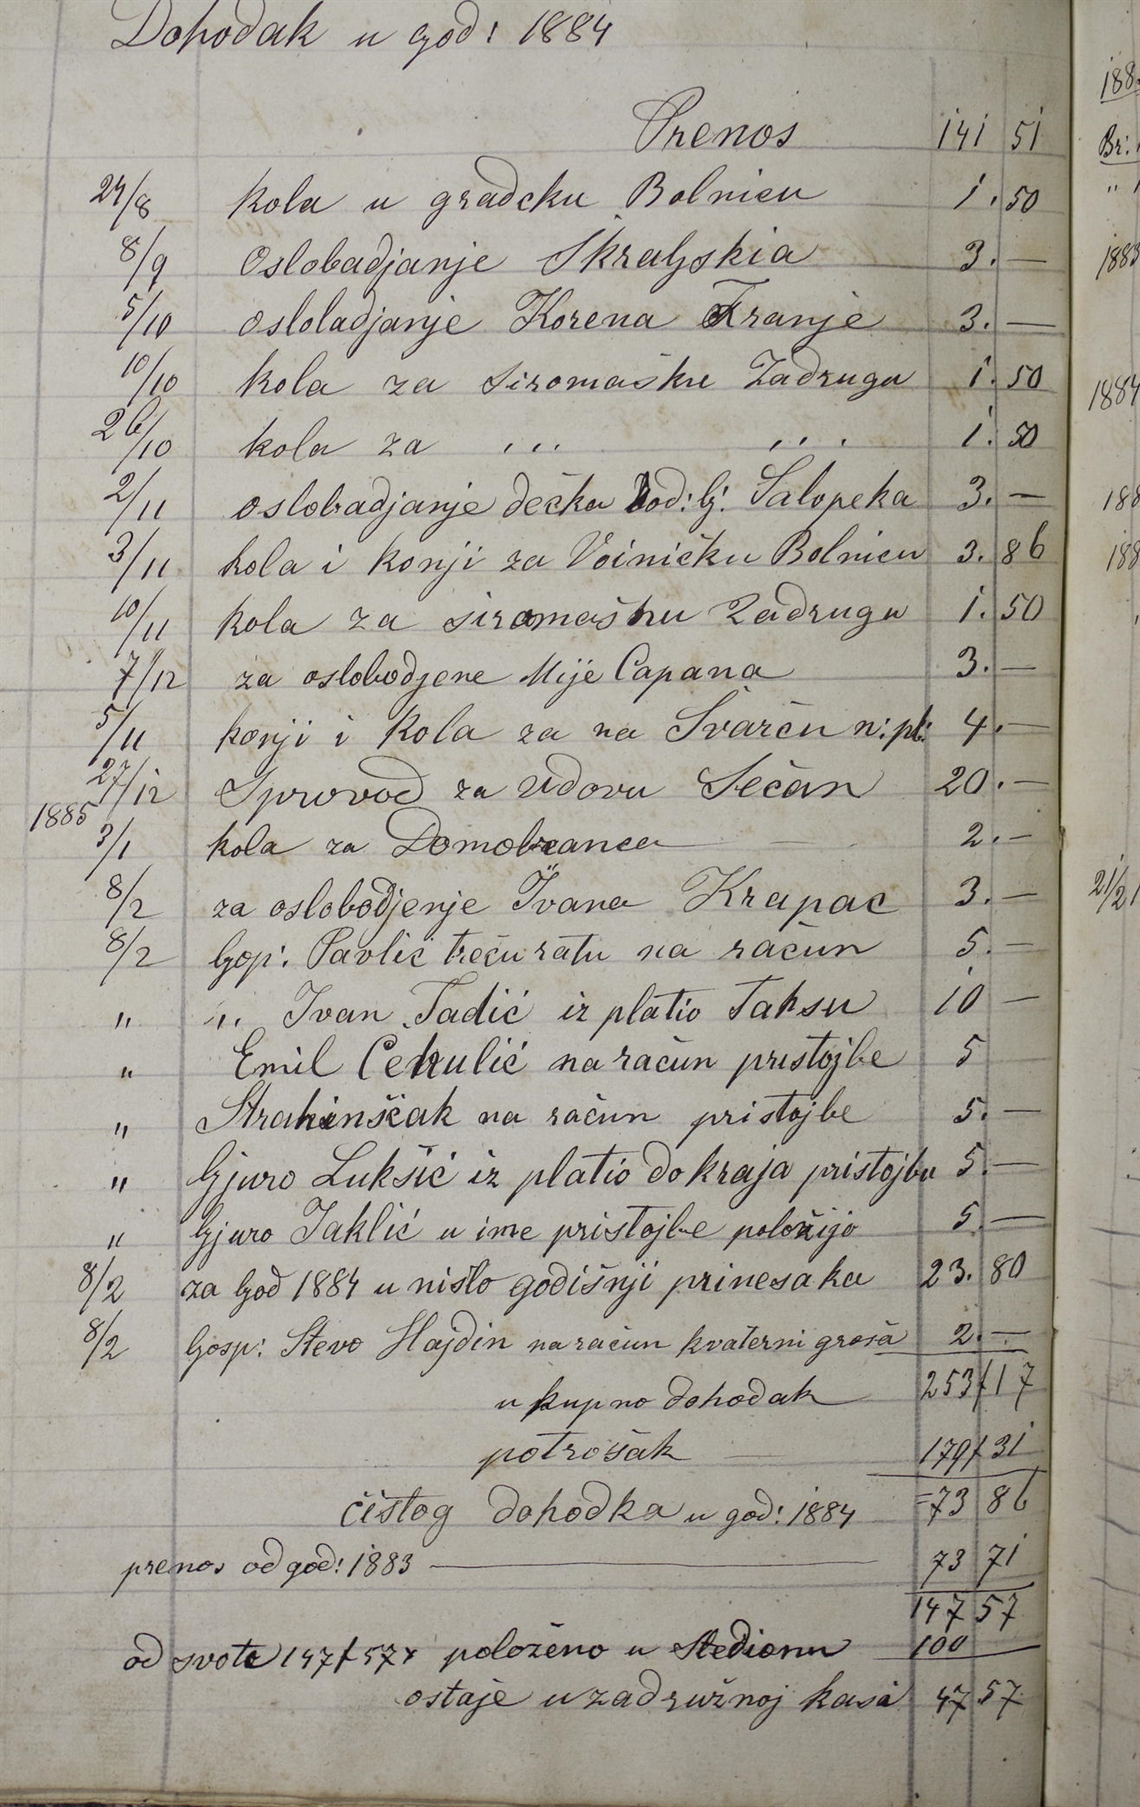 Dohodak u god: 1884
Prenos 141 51
24/8 kola u gradcku Bolnicu 1. 50
8/9 Oslobadjanje Skraljskia 3. —
5/10 osloladjanje Korena Franje 3. —
10/10 kola za siromašku Zadrugu 1. 50
26/10 kola za " " 1. 50
2/11 oslobadjanje dečka God: lj: Salopeka 3. —
3/11 kola i konji za Voiničku Bolnicu 3. 86
10/11 kola za siromašku Zadrugu 1. 50
7/12 za oslobodjene Mije Capana 3. —
5/11 konji i kola za na Švarču n: pl: 4. —
27/12 Sprovod za udovu Sečan 20. —
1885
3/1 kola za Domobranca 2. —
8/2 za oslobodjenje Ivana Krapac 3. —
8/2 Gosp: Pavlić treču ratu na račun 5. —
" " Ivan Tadić iz platio Taksu 10 —
" Emil Cekulić na račun pristojbe 5
" Strahinščak na račun pristojbe 5. —
" Gjuro Lukšić iz platio do kraja pristojbu 5. —
" Gjuro Jaklić u ime pristojbe položijo 5. —
8/2 za God 1884 u nišlo godišnji prinesaka 23. 80
8/2 Gosp: Stevo Hajdin na račun kvaterni groša 2. —
u kupno dohodak 253 f 17
potrošak 179 f 31
čistog dohodka u god: 1884 = 73 86
prenos od god: 1883 — 73 71
147 57
od svote 147 f 57 x položeno u štedionu 100 —
ostaje u zadružnoj kasi 47 57
188
Br:
" 1
1883
1884
188
188
21/21